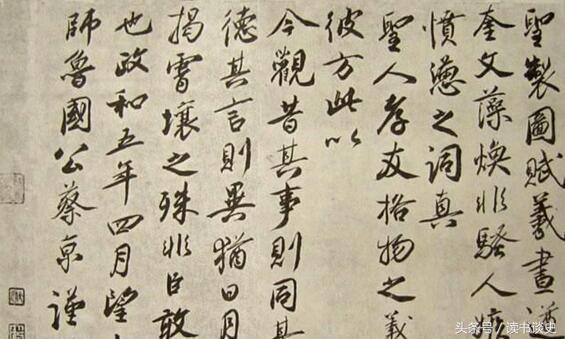 聖製圖賦羲畫
奎文藻煥非騷人嫉
憤懣之詞真
聖人孝友格物之義
彼方此以
今觀昔其事則同其
德其言則異猶日月
揭霄壤之殊非臣敢
也政和五年四月望
師魯國公蔡京謹
头条号／读书谈史